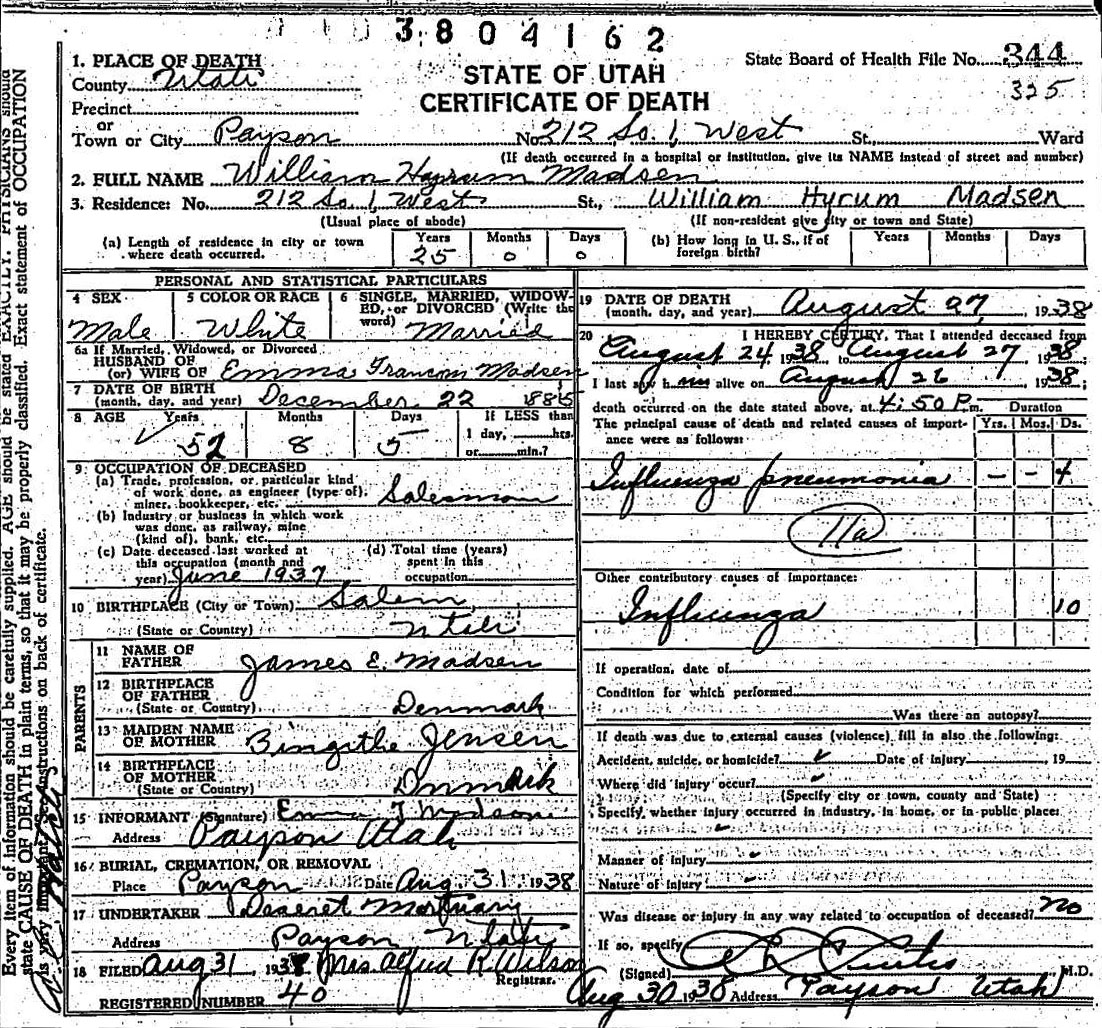 3804162
STATE OF UTAH
CERTIFICATE OF DEATH
State Board of Health File No. 344
325
1. PLACE OF DEATH
County Utah
Precinct
or
Town or City Payson No. 212 So. 1, West St., Ward
(If death occurred in a hospital or institution, give its NAME instead of street and number)
2. FULL NAME William Hyrum Madsen
3. Residence: No. 212 So. 1, West St., William Hyrum Madsen
(Usual place of abode) (If non-resident give city or town and State)
(a) Length of residence in city or town where death occurred. Years 25 Months 0 Days 0
(b) How long in U. S., if of foreign birth? Years Months Days
PERSONAL AND STATISTICAL PARTICULARS
4 SEX Male
5 COLOR OR RACE White
6 SINGLE, MARRIED, WIDOWED, or DIVORCED (Write the word) Married
6a If Married, Widowed, or Divorced
HUSBAND OF
(or) WIFE OF Emma Francom Madsen
7 DATE OF BIRTH
(month, day, and year) December 22 1885
8 AGE Years 52 Months 8 Days 5 If LESS than 1 day, hrs. or min.?
9 OCCUPATION OF DECEASED
(a) Trade, profession, or particular kind of work done, as engineer (type of), miner, bookkeeper, etc. Salesman
(b) Industry or business in which work was done, as railway, mine (kind of), bank, etc.
(c) Date deceased last worked at this occupation (month and year) June 1937
(d) Total time (years) spent in this occupation
10 BIRTHPLACE (City or Town) Salem
(State or Country) Utah
PARENTS
11 NAME OF FATHER James E. Madsen
12 BIRTHPLACE OF FATHER
(State or Country) Denmark
13 MAIDEN NAME OF MOTHER Jensen
14 BIRTHPLACE OF MOTHER
(State or Country) Dnmark
15 INFORMANT (Signature)
Address Payson Utah
16 BURIAL, CREMATION, OR REMOVAL
Place Payson Date Aug. 31 1938
17 UNDERTAKER Deseret Mortuary
Address Payson Utah
18 FILED Aug 31 1938 Mrs. Alfred R. Wilson
Registrar.
REGISTERED NUMBER 40
19 DATE OF DEATH
(month, day, and year) August 27, 1938
20 I HEREBY CERTIFY, That I attended deceased from
August 24 1938 to August 27 1938
I last saw him alive on August 26 1938;
death occurred on the date stated above, at 4:50 P.m. Duration
The principal cause of death and related causes of importance were as follows: Yrs. Mos. Ds.
Influenza pneumonia – – 4
11a
Other contributory causes of importance:
Influenza 10
If operation, date of
Condition for which performed
Was there an autopsy?
If death was due to external causes (violence), fill in also the following:
Accident, suicide, or homicide? Date of injury, 19
Where did injury occur?
(Specify city or town, county and State)
Specify whether injury occurred in industry, in home, or in public place:
Manner of injury
Nature of injury
Was disease or injury in any way related to occupation of deceased? no
If so, specify
(Signed) Curtis M.D.
Aug 30 1938 Address Payson Utah
Every item of information should be carefully supplied. AGE should be stated EXACTLY. PHYSICIANS should
state CAUSE OF DEATH in plain terms, so that it may be properly classified. Exact statement of OCCUPATION
is very important. See instructions on back of certificate.